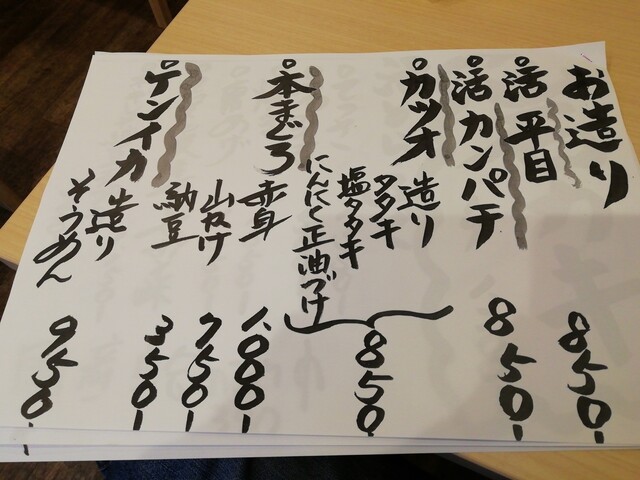 お造り
活 平目 850-
活 カンパチ 850-
カツオ 造り
タタキ
塩タタキ
にんにく正油づけ
850-
本まぐろ 赤身 1,000-
山かけ 750-
納豆 350-
ケンイカ 造り
そうめん 950-